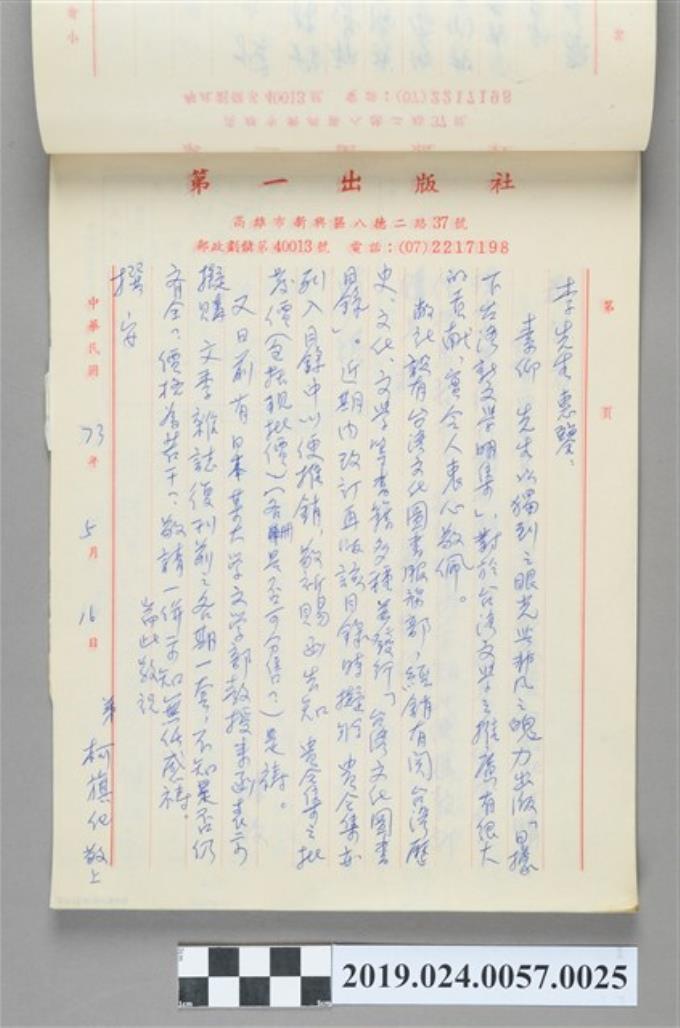 郵政劃撥第40013號 電話：(07)2217198
高雄市新興區八德二路37號
第一出版社
高雄市新興區八德二路37號
郵政劃撥第40013號 電話：(07)2217198
第 頁
李先生惠鑒：
素仰 先生以獨到之眼光與非凡之魄力出版「日據
下台湾新文学明集」，對於台湾文学之推廣有很大
的貢献，實令人衷心敬佩。
敝社設有台湾文化圖書服務部，經銷有関台湾歷
史、文化、文学等書籍多種並發行「台湾文化圖書
目錄」。近期内改訂再版該目錄時擬將 貴全集亦
列入目錄中以便推銷，敬祈賜函告知 貴全集之批
發價（包括現批價）（各冊是否可分售？）是禱。
又日前有日本某大学文学部教授來函表示
擬購 文季雜誌復刊前之各期一套，不知是否仍
齊全？價格為若干？敬請一併示知無任感禱。
耑此敬祝
撰安
弟 柯旗化 敬上
中華民國 73年 5月 16日
2019.024.0057.0025